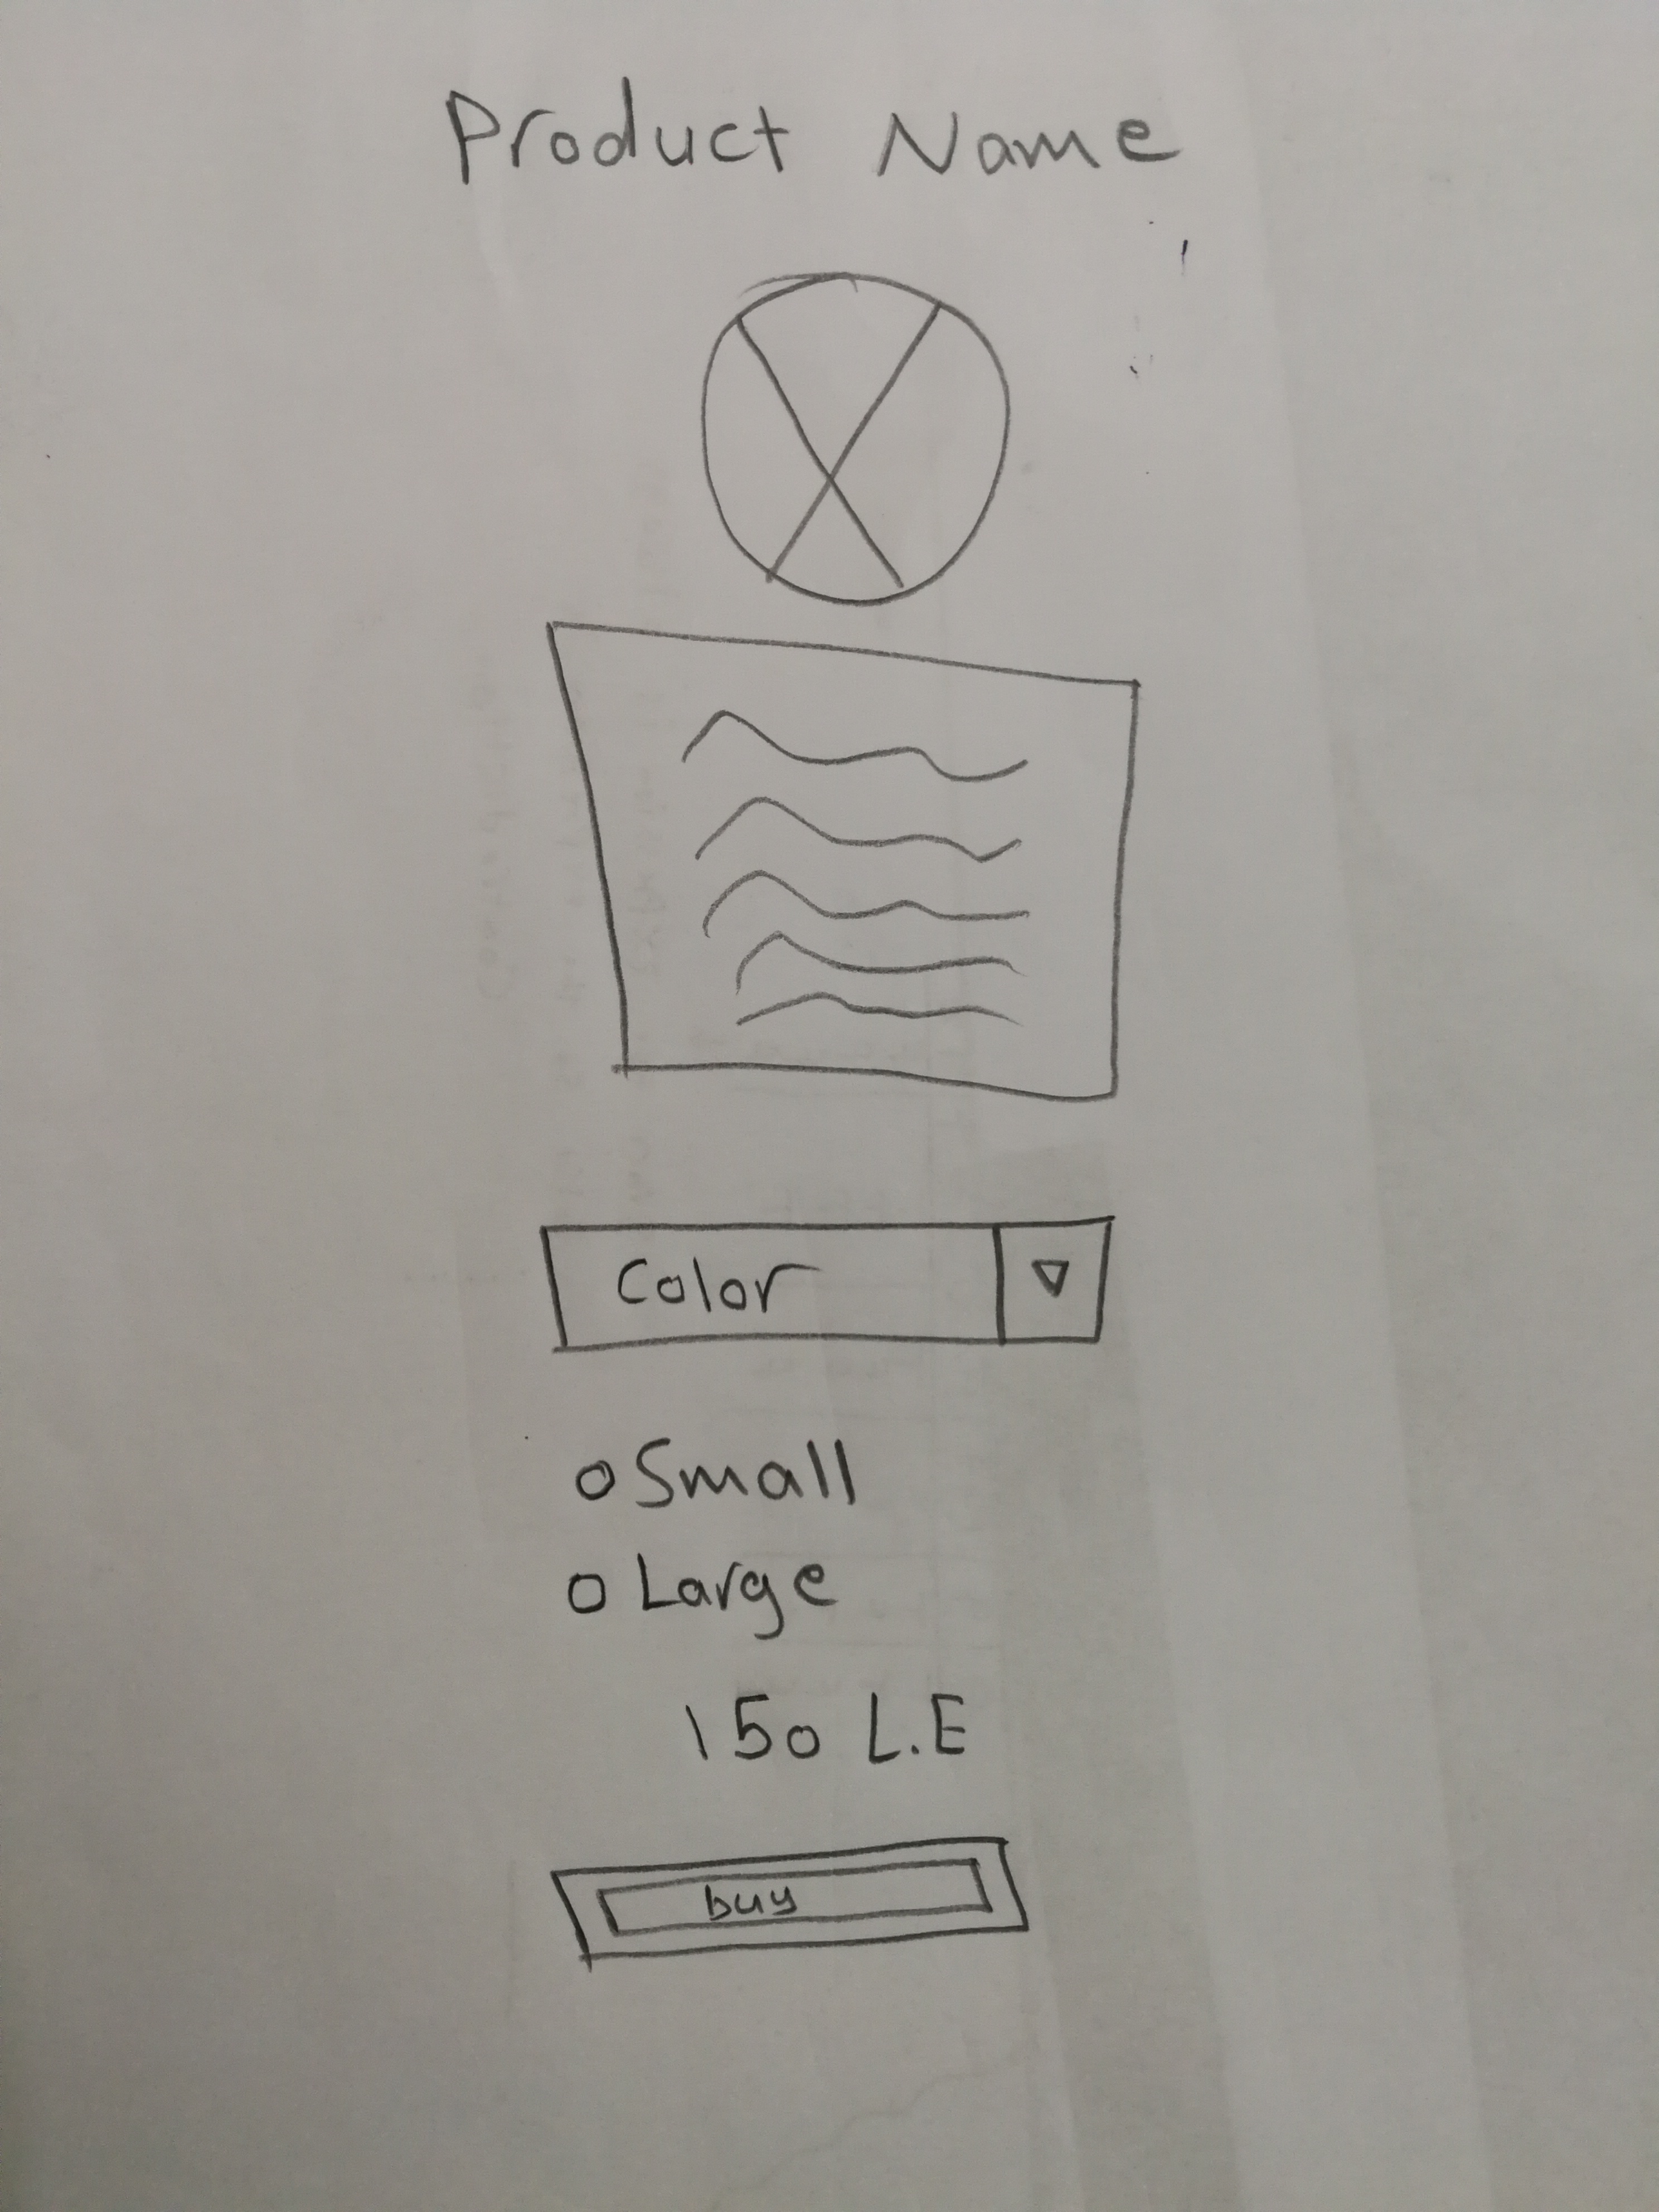 Product Name
Color
Small
Large
150 L.E
buy